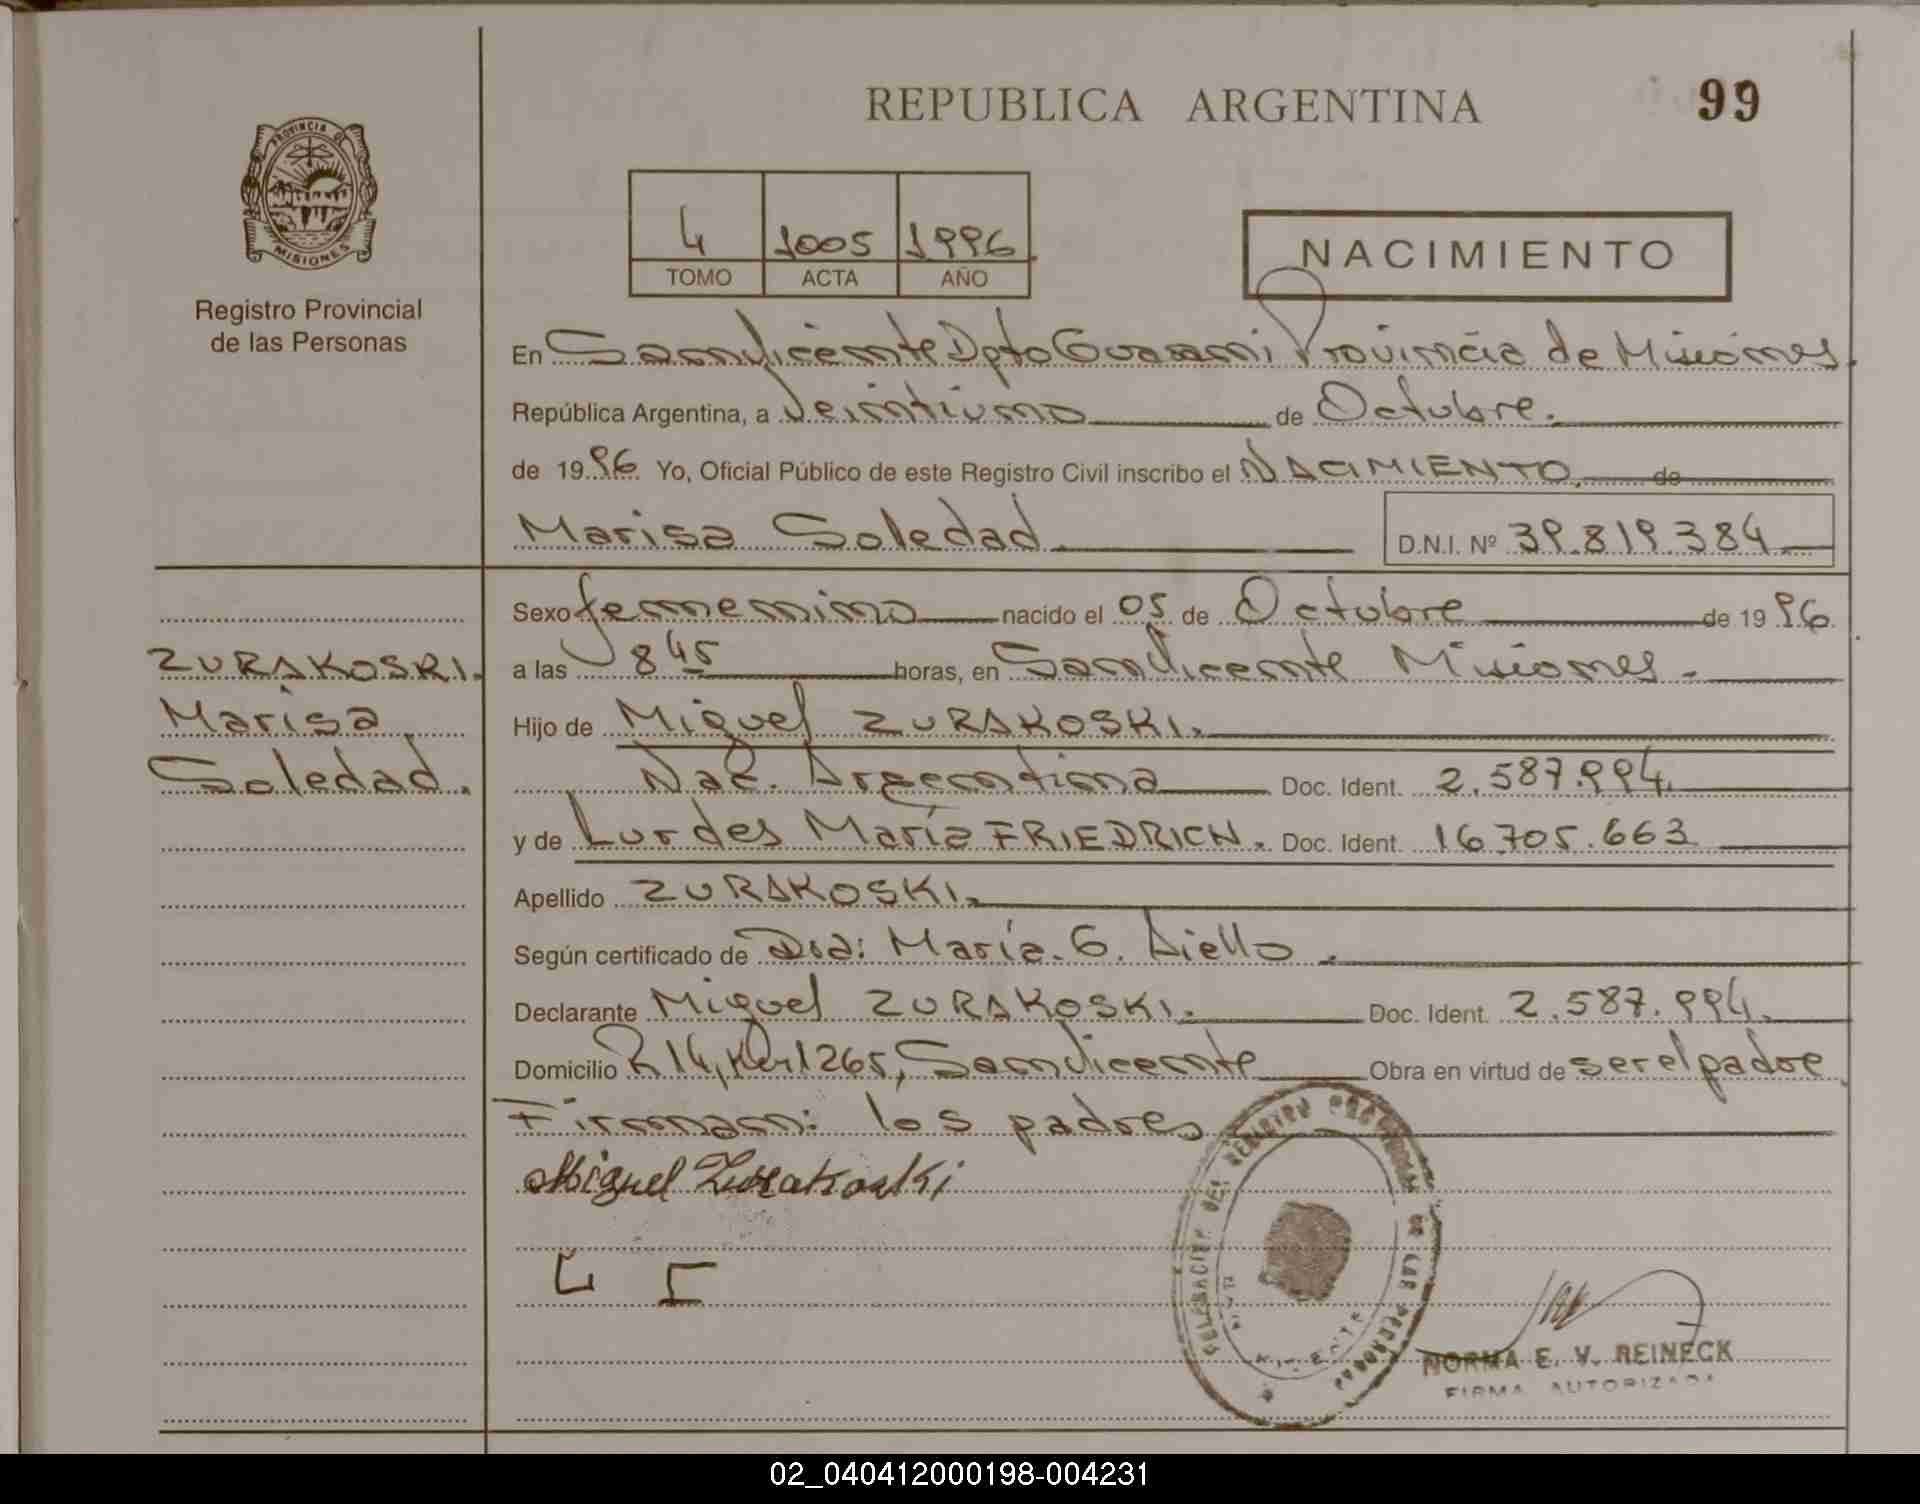 REPUBLICA ARGENTINA
99
PROVINCIA DE
MISIONES
Registro Provincial
de las Personas
4 1005 1996
TOMO ACTA AÑO
NACIMIENTO
En San Vicente Dpto Guarani Provincia de Misiones.
República Argentina, a Veintiuno de Octubre.
de 1996 Yo, Oficial Público de este Registro Civil inscribo el NACIMIENTO de
Marisa Soledad. D.N.I. Nº 39.819.384
ZURAKOSKI.
Marisa
Soledad.
Sexo femenino nacido el 05 de Octubre de 1996
a las 8 45 horas, en San Vicente Misiones.
Hijo de Miguel ZURAKOSKI.
Nac. Argentina Doc. Ident. 2.587.994.
y de Lurdes María FRIEDRICH. Doc. Ident. 16.705.663
Apellido ZURAKOSKI.
Según certificado de Dra: María. G. Aiello.
Declarante Miguel ZURAKOSKI. Doc. Ident. 2.587.994.
Domicilio R 14, Km 1265, San Vicente Obra en virtud de ser el padre
Firman: los padres
Miguel Zurakoski
DELEGACION DEL REGISTRO PROVINCIAL DE LAS PERSONAS
L F
NORMA E. V. REINECK
FIRMA AUTORIZADA
02_040412000198-004231